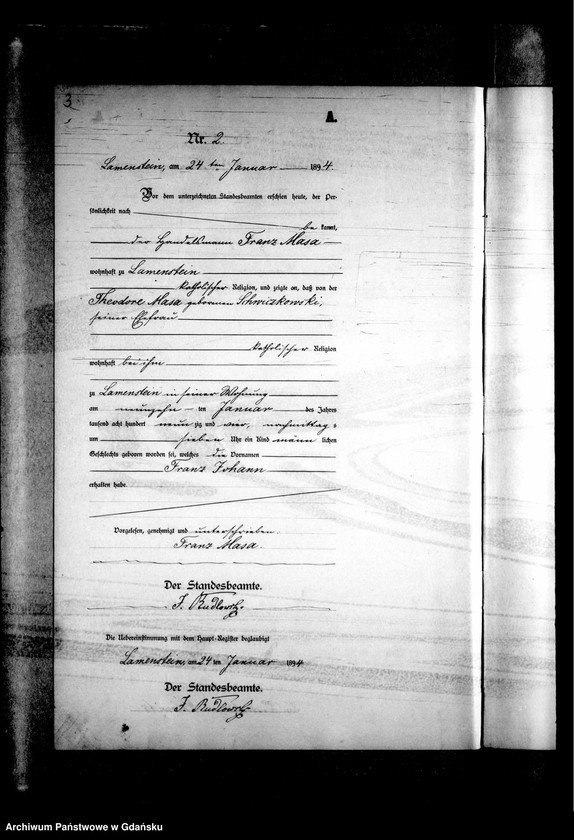 3
A.
Nr. 2.
Lamenstein, am 24 ten Januar 1894
Vor dem unterzeichneten Standesbeamten erschien heute, der Per-
sönlichkeit nach
be kannt,
der Handelsmann Franz Masa
wohnhaft zu Lamenstein
katholischer Religion, und zeigte an, daß von der
Theodore Masa geborenen Schwiczkowski,
seiner Ehefrau
katholischer Religion
wohnhaft bei ihm
zu Lamenstein in seiner Wohnung
am neunzehn ten Januar des Jahres
tausend acht hundert neun zig und vier, nachmittags
um sieben Uhr ein Kind männ lichen
Geschlechts geboren worden sei, welches die Vornamen
Franz Johann
erhalten habe.
Vorgelesen, genehmigt und unterschrieben
Franz Masa.
Der Standesbeamte.
Die Uebereinstimmung mit dem Haupt-Register beglaubigt
Lamenstein, am 24 ten Januar 1894
Der Standesbeamte.
Archiwum Państwowe w Gdańsku